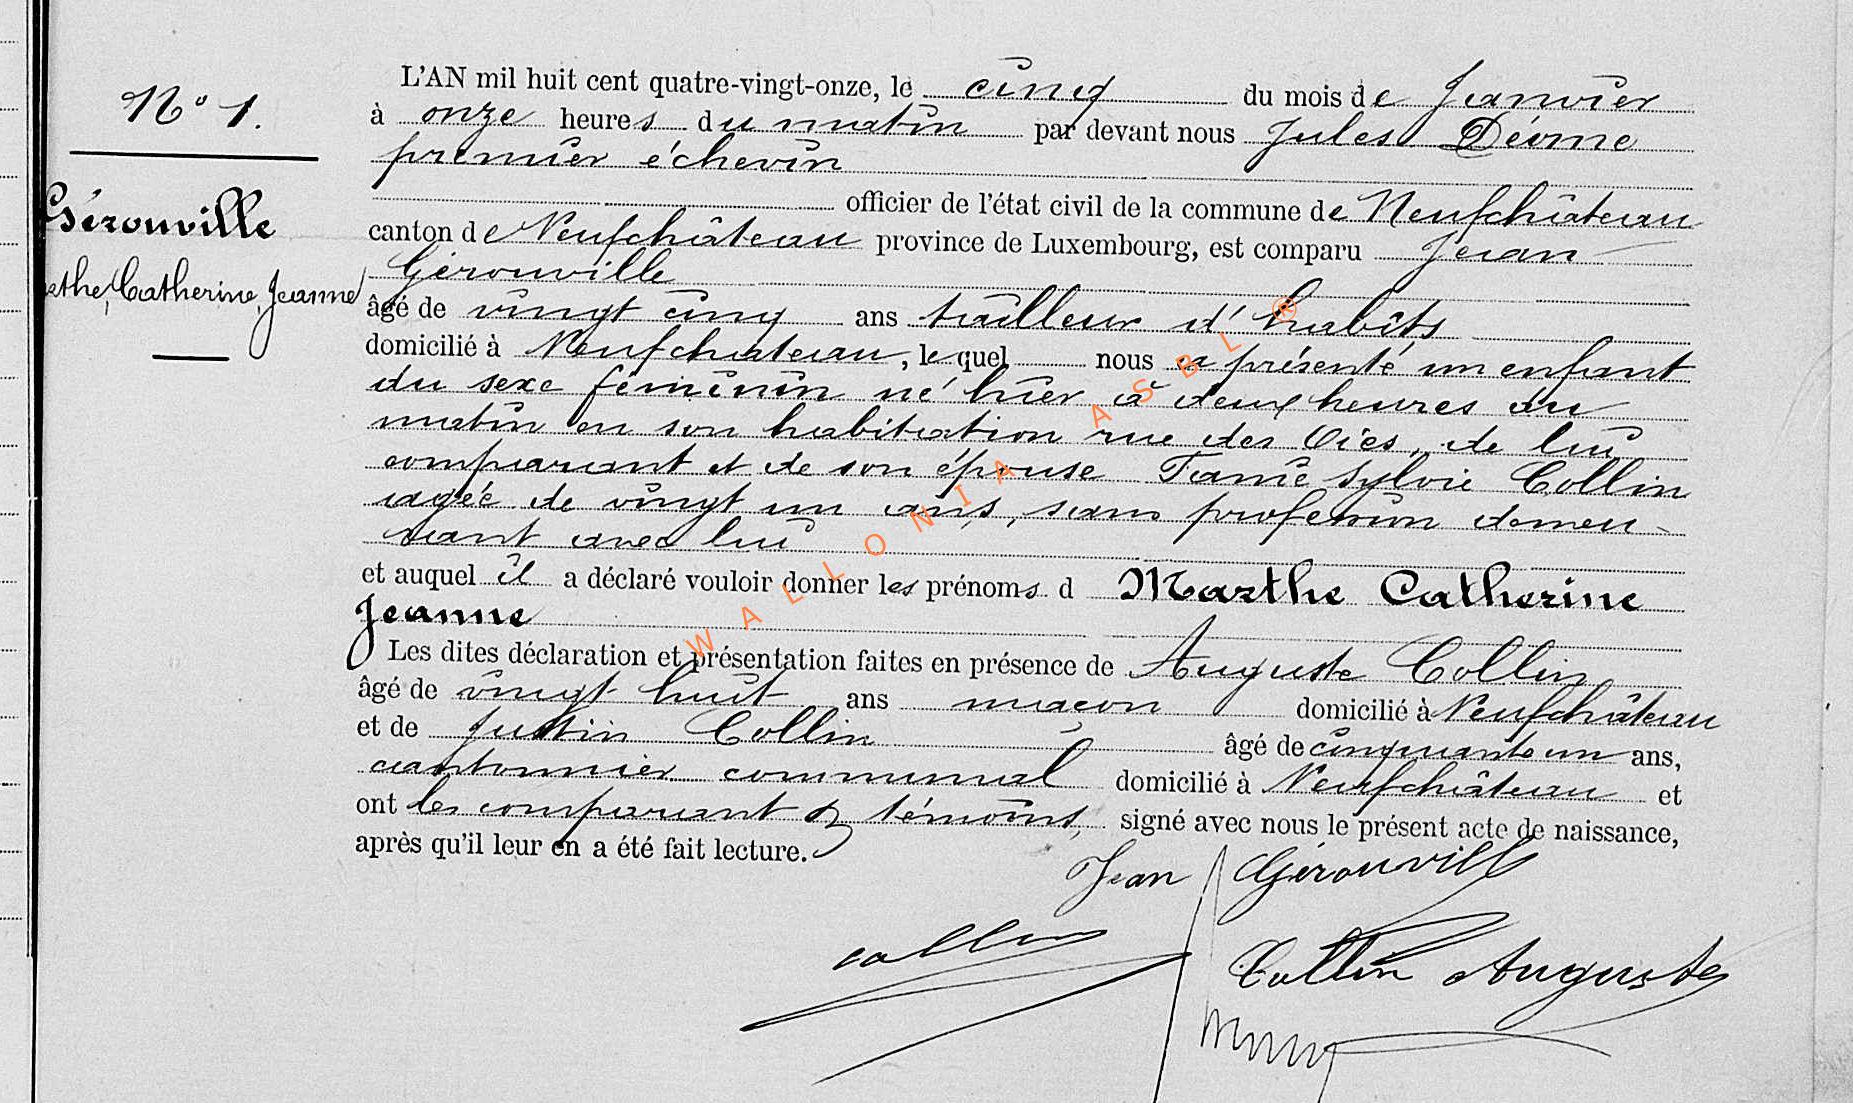 N° 1.
Gérouville
Marthe, Catherine, Jeanne
L'AN mil huit cent quatre-vingt-onze, le cinq du mois de Janvier
à onze heures du matin par devant nous Jules Déome
premier échevin
officier de l'état civil de la commune de Neufchâteau
canton de Neufchâteau province de Luxembourg, est comparu Jean
Gérouville
âgé de vingt cinq ans tailleur d'habits
domicilié à Neufchateau, lequel nous a présenté un enfant
du sexe féminin né hier à deux heures du
matin en son habitation rue des Oies, de lui
comparant et de son épouse Fanie Sylvie Collin
agée de vingt un ans, sans profession demeu-
rant avec lui
et auquel il a déclaré vouloir donner les prénoms d Marthe Catherine
Jeanne
Les dites déclaration et présentation faites en présence de Auguste Collin
âgé de vingt huit ans maçon domicilié à Neufchâteau
et de Justin Collin âgé de cinquante un ans,
cantonnier communal domicilié à Neufchâteau et
ont les comparant & témoins, signé avec nous le présent acte de naissance,
après qu'il leur en a été fait lecture.
Jean Gérouville
Collin
Collin Auguste
WALLONIA ASBL ®